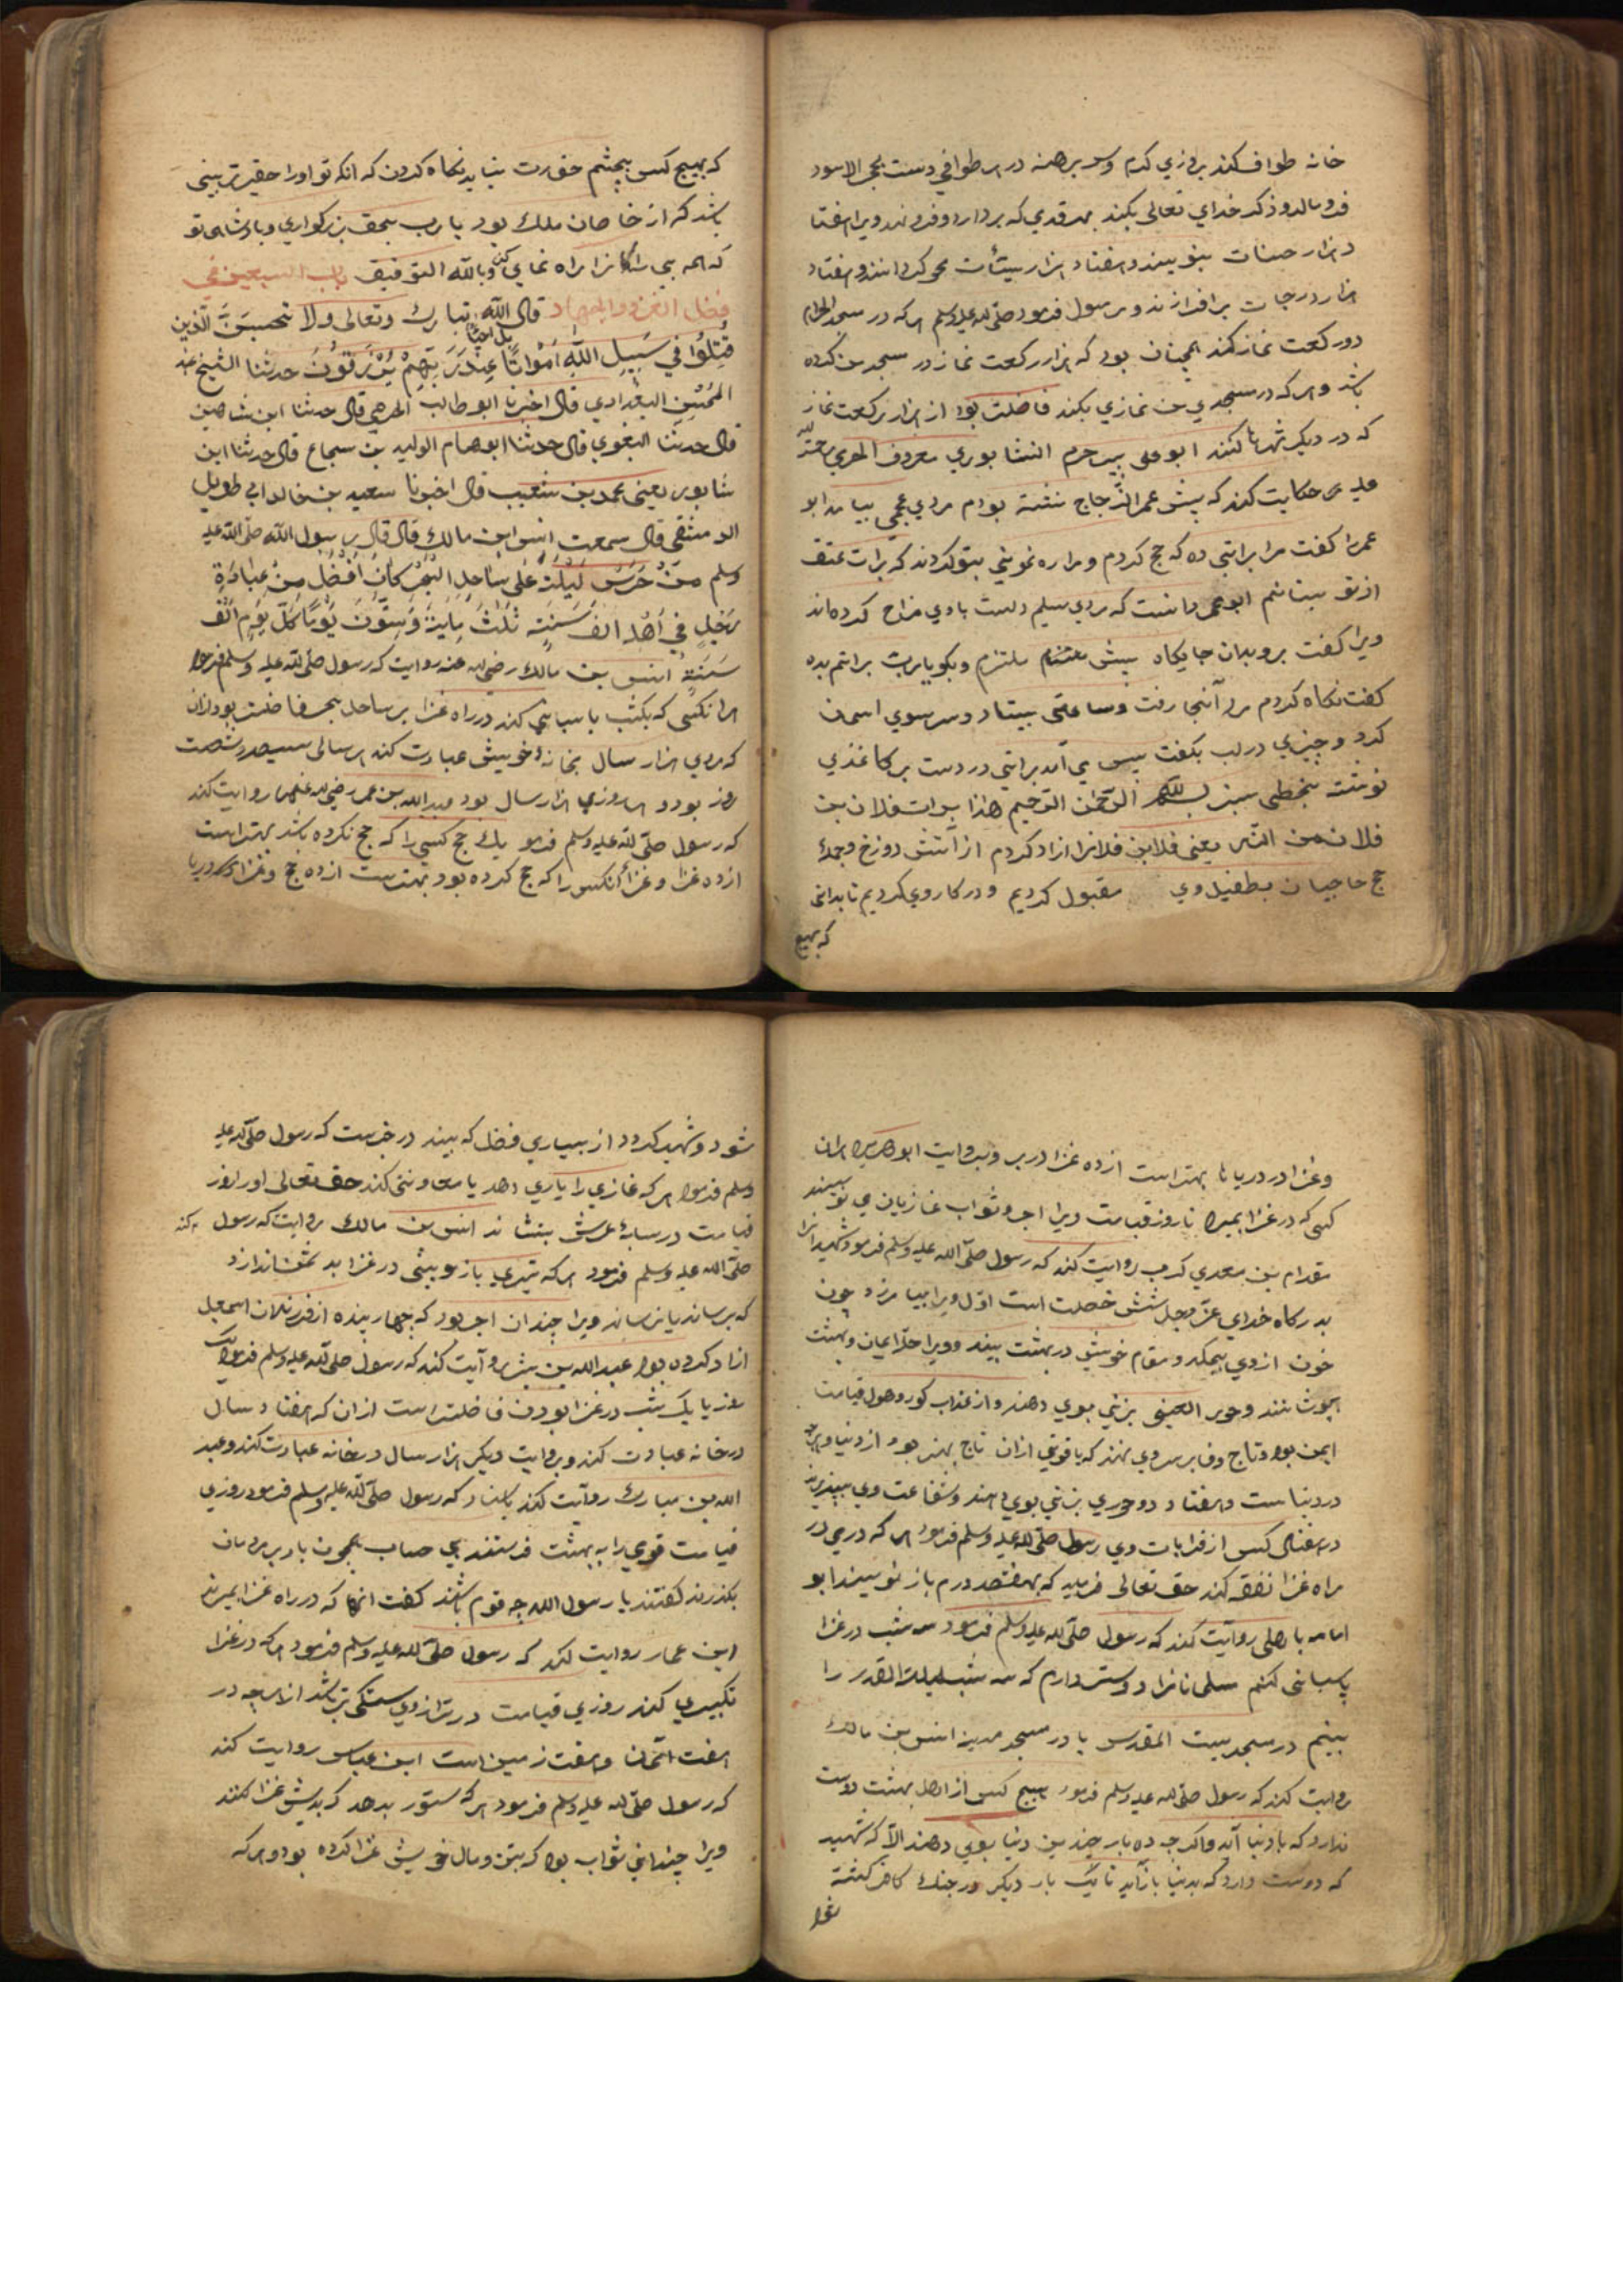 خانه طواف کند بروزي کرم و سر برهنه در هر طوافي دست بحجر الاسود
فرو مالد و ذکر خداي تعالی بکند بهر قدمي که بردارد و فرو نهد ویرا هفتا
د هزار حسنات بنویسند و هفتاد هزار سیئات محو کردانند و هفتاد
هزار درجات برافرازند و رسول فرمود صلّی الله علیه وسلم هر که در مسجد الحرام
دو رکعت نماز کند همچنان بود که هزار رکعت نماز در مسجد من کرده
باشد و هر که در مسجدي من نمازي بکند فاضلت بود از هزار رکعت نماز
که در دیکر شهرها کنند ابو علی
حکایت کند که پیش عمر الزّجاج نشسته بودم مردي عجمي بیامد ابو
عمر را کفت مرا براتي ده که حج کردم و مرا ره نمونی بتو کردند که برات عتق
از تو بستانم ابو عمر دانست که مردي سلیم دلست با وي مزاح کرده اند
ویرا کفت برو بدان جایکاه پیش ملتزم و بکو یا رب براتم بده
کفت نکاه کردم مرد آنجا رفت و ساعتی بیستاد و سر سوي اسمان
کرد و چیزي در لب بکفت پس می آمد براتي در دست بر کاغذي
نوشته بخطی سبز بسم الله الرّحمن الرّحیم هذا برات فلان بن
فلان من النّار یعنی فلابن فلانرا ازاد کردم از آتش دوزخ و جملهٔ
حج حاجیان بطفیل وي مقبول کردیم و در کار وي کردیم تا بدانی
که بهیچ
که بهیچ کس بچشم حقارت نباید نکاه کردن که انکه تو اورا حقیرتر بینی
باشد که از خاصان ملك بود یا رب بحق بزرکواري و بادشاهی تو
که همه بي راهانرا راه نماي کنی وبالله التوفیق باب السبعین في
فضل الغزو والجهاد قال الله تبارك وتعالی ولا تحسبنَّ الّذین
قُتِلُوا فِي سَبِیلِ اللّٰهِ اَمْوَاتًا بل احیاءٌ عِنْدَ رَبِّهِمْ یُرْزَقُونَ حدثنا الشیخ
البغدادي قال اخبرنا ابو طالب قال حدثنا ابن شاهین
قال حدثنا البغوي قال حدثنا ابو همام الولید بن شجاع قال حدثنا ابن
شابور یعني محمد بن شعیب قال اخبرنا سعید بن خالد ابي طویل
الدمشقي قال سمعت انس ابن مالك قال قال رسول الله صلّی الله علیه
وسلم مَنْ حَرَسَ لَیْلَةً عَلَی سَاحِلِ الْبَحْرِ کَانَ اَفْضَلَ مِنْ عِبَادَةِ
رَجُلٍ فِي اَهْلِهِ اَلْفَ سَنَةٍ ثَلٰثُ مِایَةٍ وَسِتُّونَ یَوْمًا کُلُّ یَوْمٍ اَلْفُ
سَنَةٍ انس بن مالك رضي الله عنه روایت که رسول صلّی الله علیه وسلم فرمود
هر انکسی که یکشب پاسبانی کند در راه غزا بر ساحل بحر فاضلت بود ازان
که مردي هزار سال بخانهٔ خویش عبادت کند هر سالی سیصد و شصت
روز بود و هر روزي هزار سال بود عبد الله بن عمر رضي الله عنهما روایت کند
که رسول صلّی الله علیه وسلم فرمود یك حج کسي را که حج نکرده باشد بهتر است
از ده غزا و غزاء انکس را که حج کرده بود بهترست از ده حج و غزا در دریا
وغزا در دریا بهتر است از ده غزا در بر و بروایت ابو هریره هر ان
کسی که در غزا بمیرد تا روز قیامت ویرا اجر و ثواب غازیان مي نویسند
مقدام بن معدي کرب روایت کند که رسول صلّی الله علیه وسلم فرمود شهید انرا
بدرکاه خداي عزّ وجل شش خصلت است اوّل ویرا بیامرزد چون
خون از وي بچکد و مقام خویش در بهشت بیند و ویرا حلّه ایمان
پوشانند و حور العین بزني بوي دهند و از عذاب کور و هول قیامت
ایمن بود و تاج وقار بر سر وي نهند که یاقوتي ازان تاج بهتر بود از دنیا و هر چه
در دنیاست و هفتاد و دو حوري بزني بوي دهند و شفاعت وي بپذیرند
در هفتاد کس از قرابات وي رسول صلّی الله علیه وسلم فرمود هر که درمي در
راه غزا نفقه کند حق تعالی فرماید که بهفتصد درم باز نویسند ابو
امامه باهلی روایت کند که رسول صلّی الله علیه وسلم فرمود سه شب در غزا
پاسبانی کنم مسلمانانرا دوستر دارم که سه شب لیلة القدر را
بینم در مسجد بیت المقدس یا در مسجد مدینه انس بن مالك
روایت کند که رسول صلّی الله علیه وسلم فرمود هیچ کس از اهل بهشت دوست
ندارد که با دنیا آید واکرچه ده بار چندین دنیا بوي دهند الاّ که شهید
که دوست دارد که بدنیا باز آید تا یک بار دیکر در جنك کافر کشته
شود
شود و شهید کردد از بسیاري فضل که بیند در خبرست که رسول صلّی الله علیه
وسلم فرمود هر که غازي را یاري دهد یا معاونتی کند حق تعالی اورا روز
قیامت در سایهٔ عرش بنشاند انس بن مالك روایت کند که رسول
صلّی الله علیه وسلم فرمود هر که تیري در غزا اندازد
که برساند یا نرساند ویرا چندان اجر بود که چهار بنده از فرزندان اسمعیل
ازاد کرده بود عبد الله بن روآیت کند که رسول صلّی الله علیه وسلم فرمود یک
روز یا یک شب در غزا بودن فاضلتر است ازان که هفتاد سال
در خانه عبادت کند و بروایت دیکر هزار سال در خانه عبادت کند و عبد
الله بن مبارك روآیت کند باسناد که رسول صلّی الله علیه وسلم فرمود روزي
قیامت قومي را به بهشت فرستند بي حساب همچون باد بر مردمان
بکذرند کفتند یا رسول الله چه قوم باشند کفت انها که در راه غزا بمیرند
ابن عمار روایت کند که رسول صلّی الله علیه وسلم فرمود هر که در غزا
تکبیري کند روزي قیامت در ترازوي سنکی تر باشد از هر چه در
هفت آسمان و هفت زمین است ابن عباس روایت کند
که رسول صلّی الله علیه وسلم فرمود هر که ستور بدهد که بدیش غزا کنند
ویرا چنداني ثواب بود که بتن و مال خویش غزا کرده بود و هر که